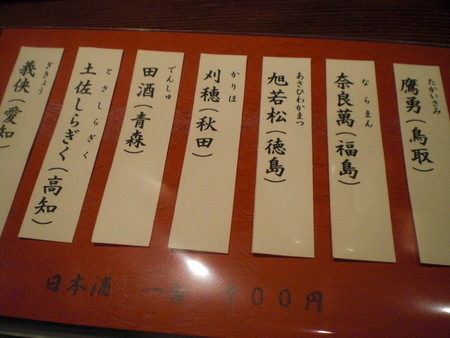 たかいさみ
鷹勇(鳥取)
ならまん
奈良萬(福島)
あさひわかまつ
旭若松(徳島)
かりほ
刈穂(秋田)
でんしゅ
田酒(青森)
とさしらぎく
土佐しらぎく(高知)
ぎきょう
義侠(愛知)
日本酒 一合 900円